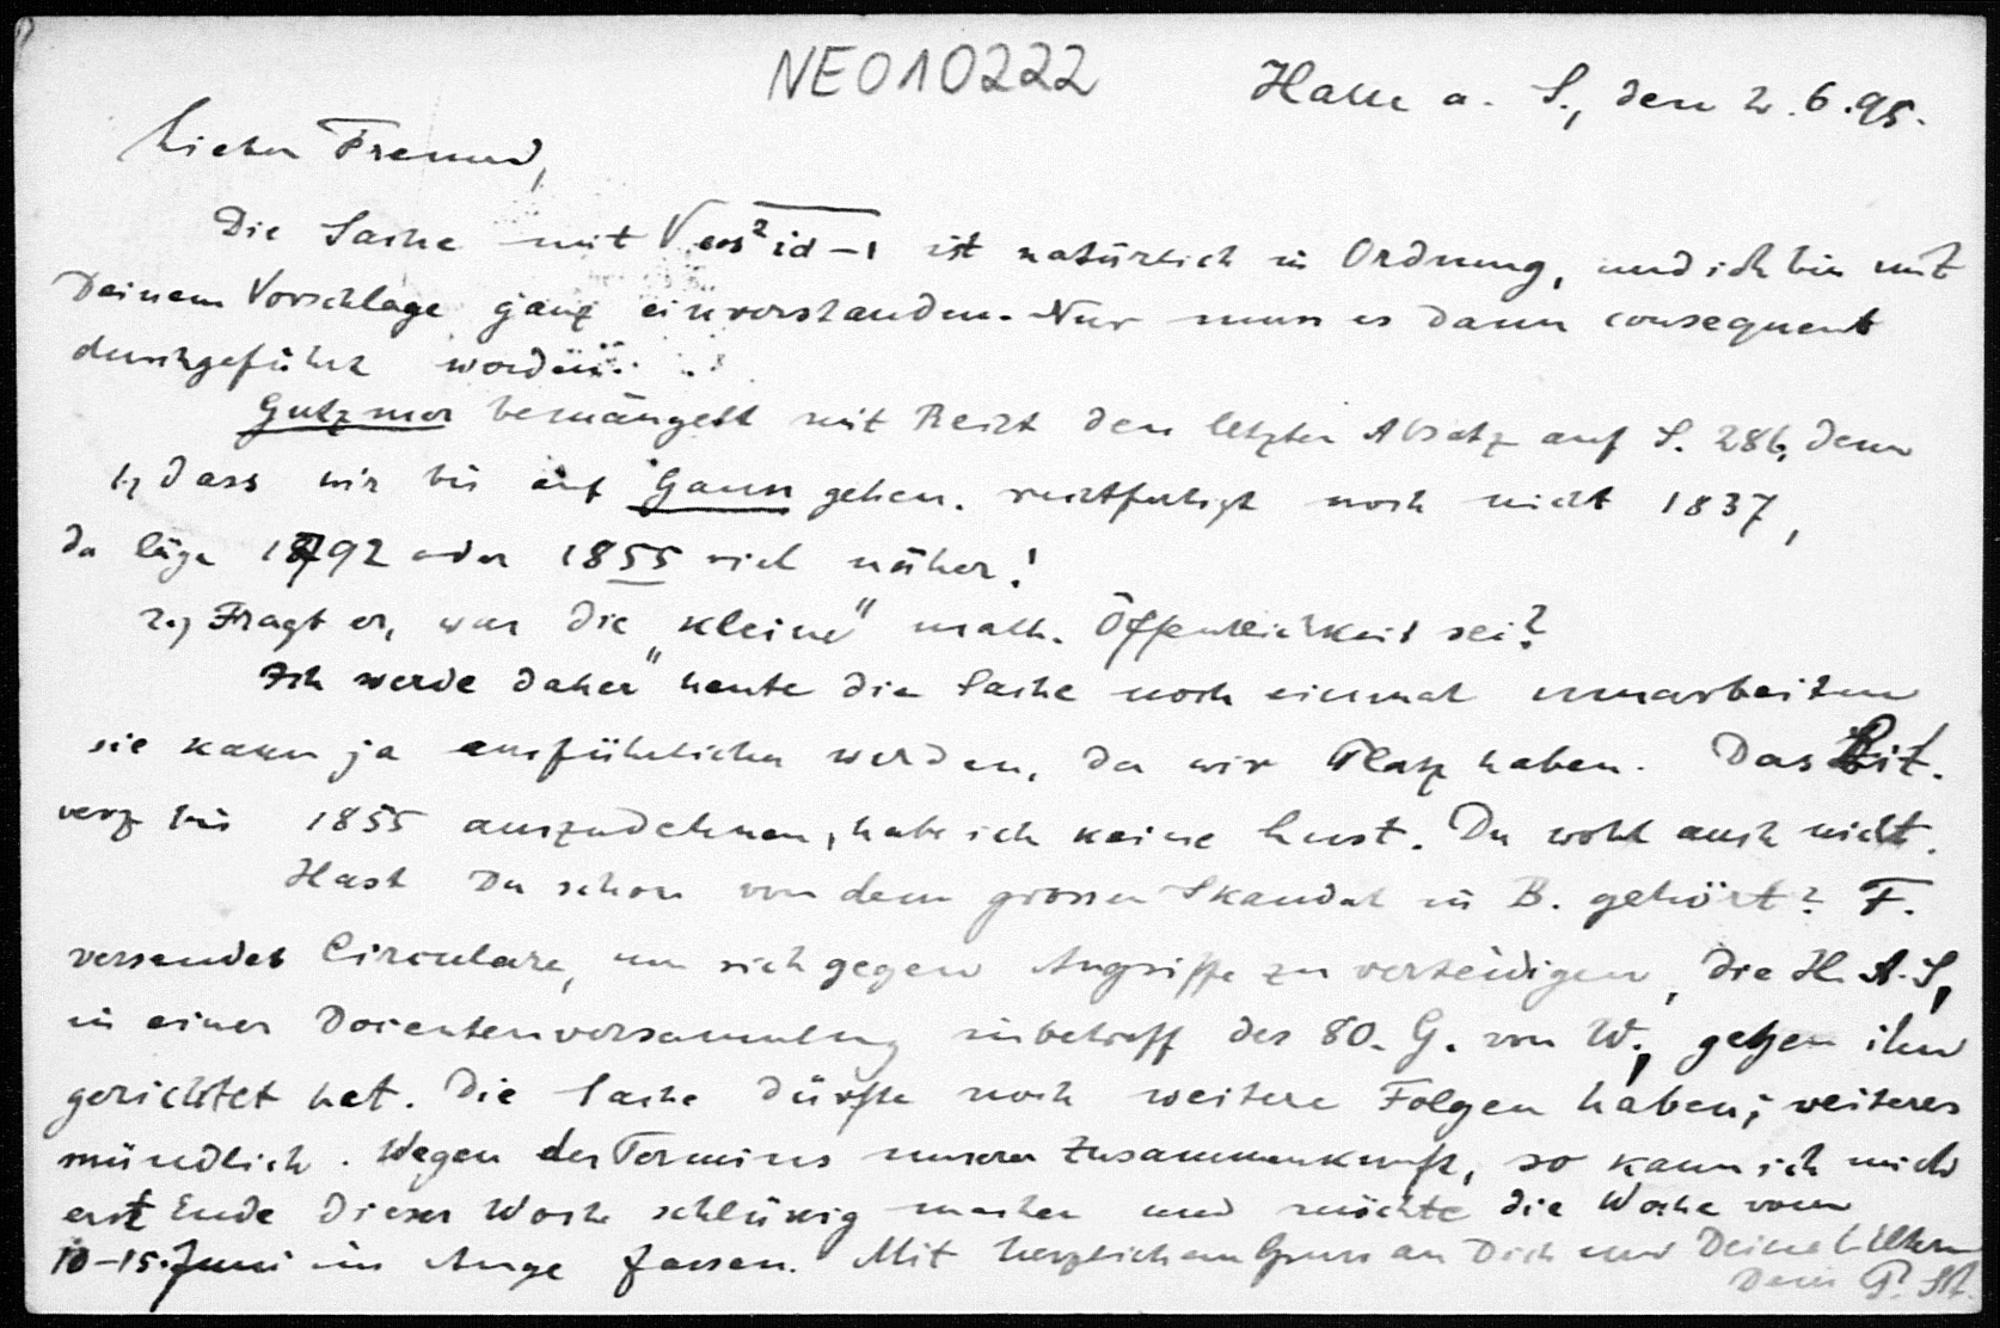 NE010222
Halle a. S., den 2.6.95.
Lieber Freund,
Die Sache mit √cos² id – 1 ist natürlich in Ordnung, und ich bin mit
Deinem Vorschlage ganz einverstanden. Nur muss es dann consequent
durchgeführt werden.
Gutzmer bemängelt mit Recht den letzten Absatz auf S. 286, denn
1., dass wir bis auf Gauss gehen, rechtfertigt noch nicht 1837,
da läge 1792 oder 1855 viel näher!
2., Fragt er, was die „kleine" math. Öffentlichkeit sei?
Ich werde daher heute die Sache noch einmal umarbeiten
sie kann ja ausführlicher werden, da wir Platz haben. Das Lit.
verz bis 1855 auszudehnen, habe ich keine Lust. Du wohl auch nicht.
Hast Du schon von dem grossen Skandal in B. gehört? F.
versendet Circulare, um sich gegen Angriffe zu verteidigen, die H. A. S,
in einer Docentenversammlung inbetreff des 80. G. von W., gegen ihn
gerichtet hat. Die Sache dürfte noch weitere Folgen haben; weiteres
mündlich. Wegen des Termins unserer Zusammenkunft, so kann ich mich
erst Ende dieser Woche schlüssig machen und möchte die Woche vom
10–15. Juni ins Auge fassen. Mit herzlichem Gruss an Dich und Deine l. Eltern
Dein P. St.